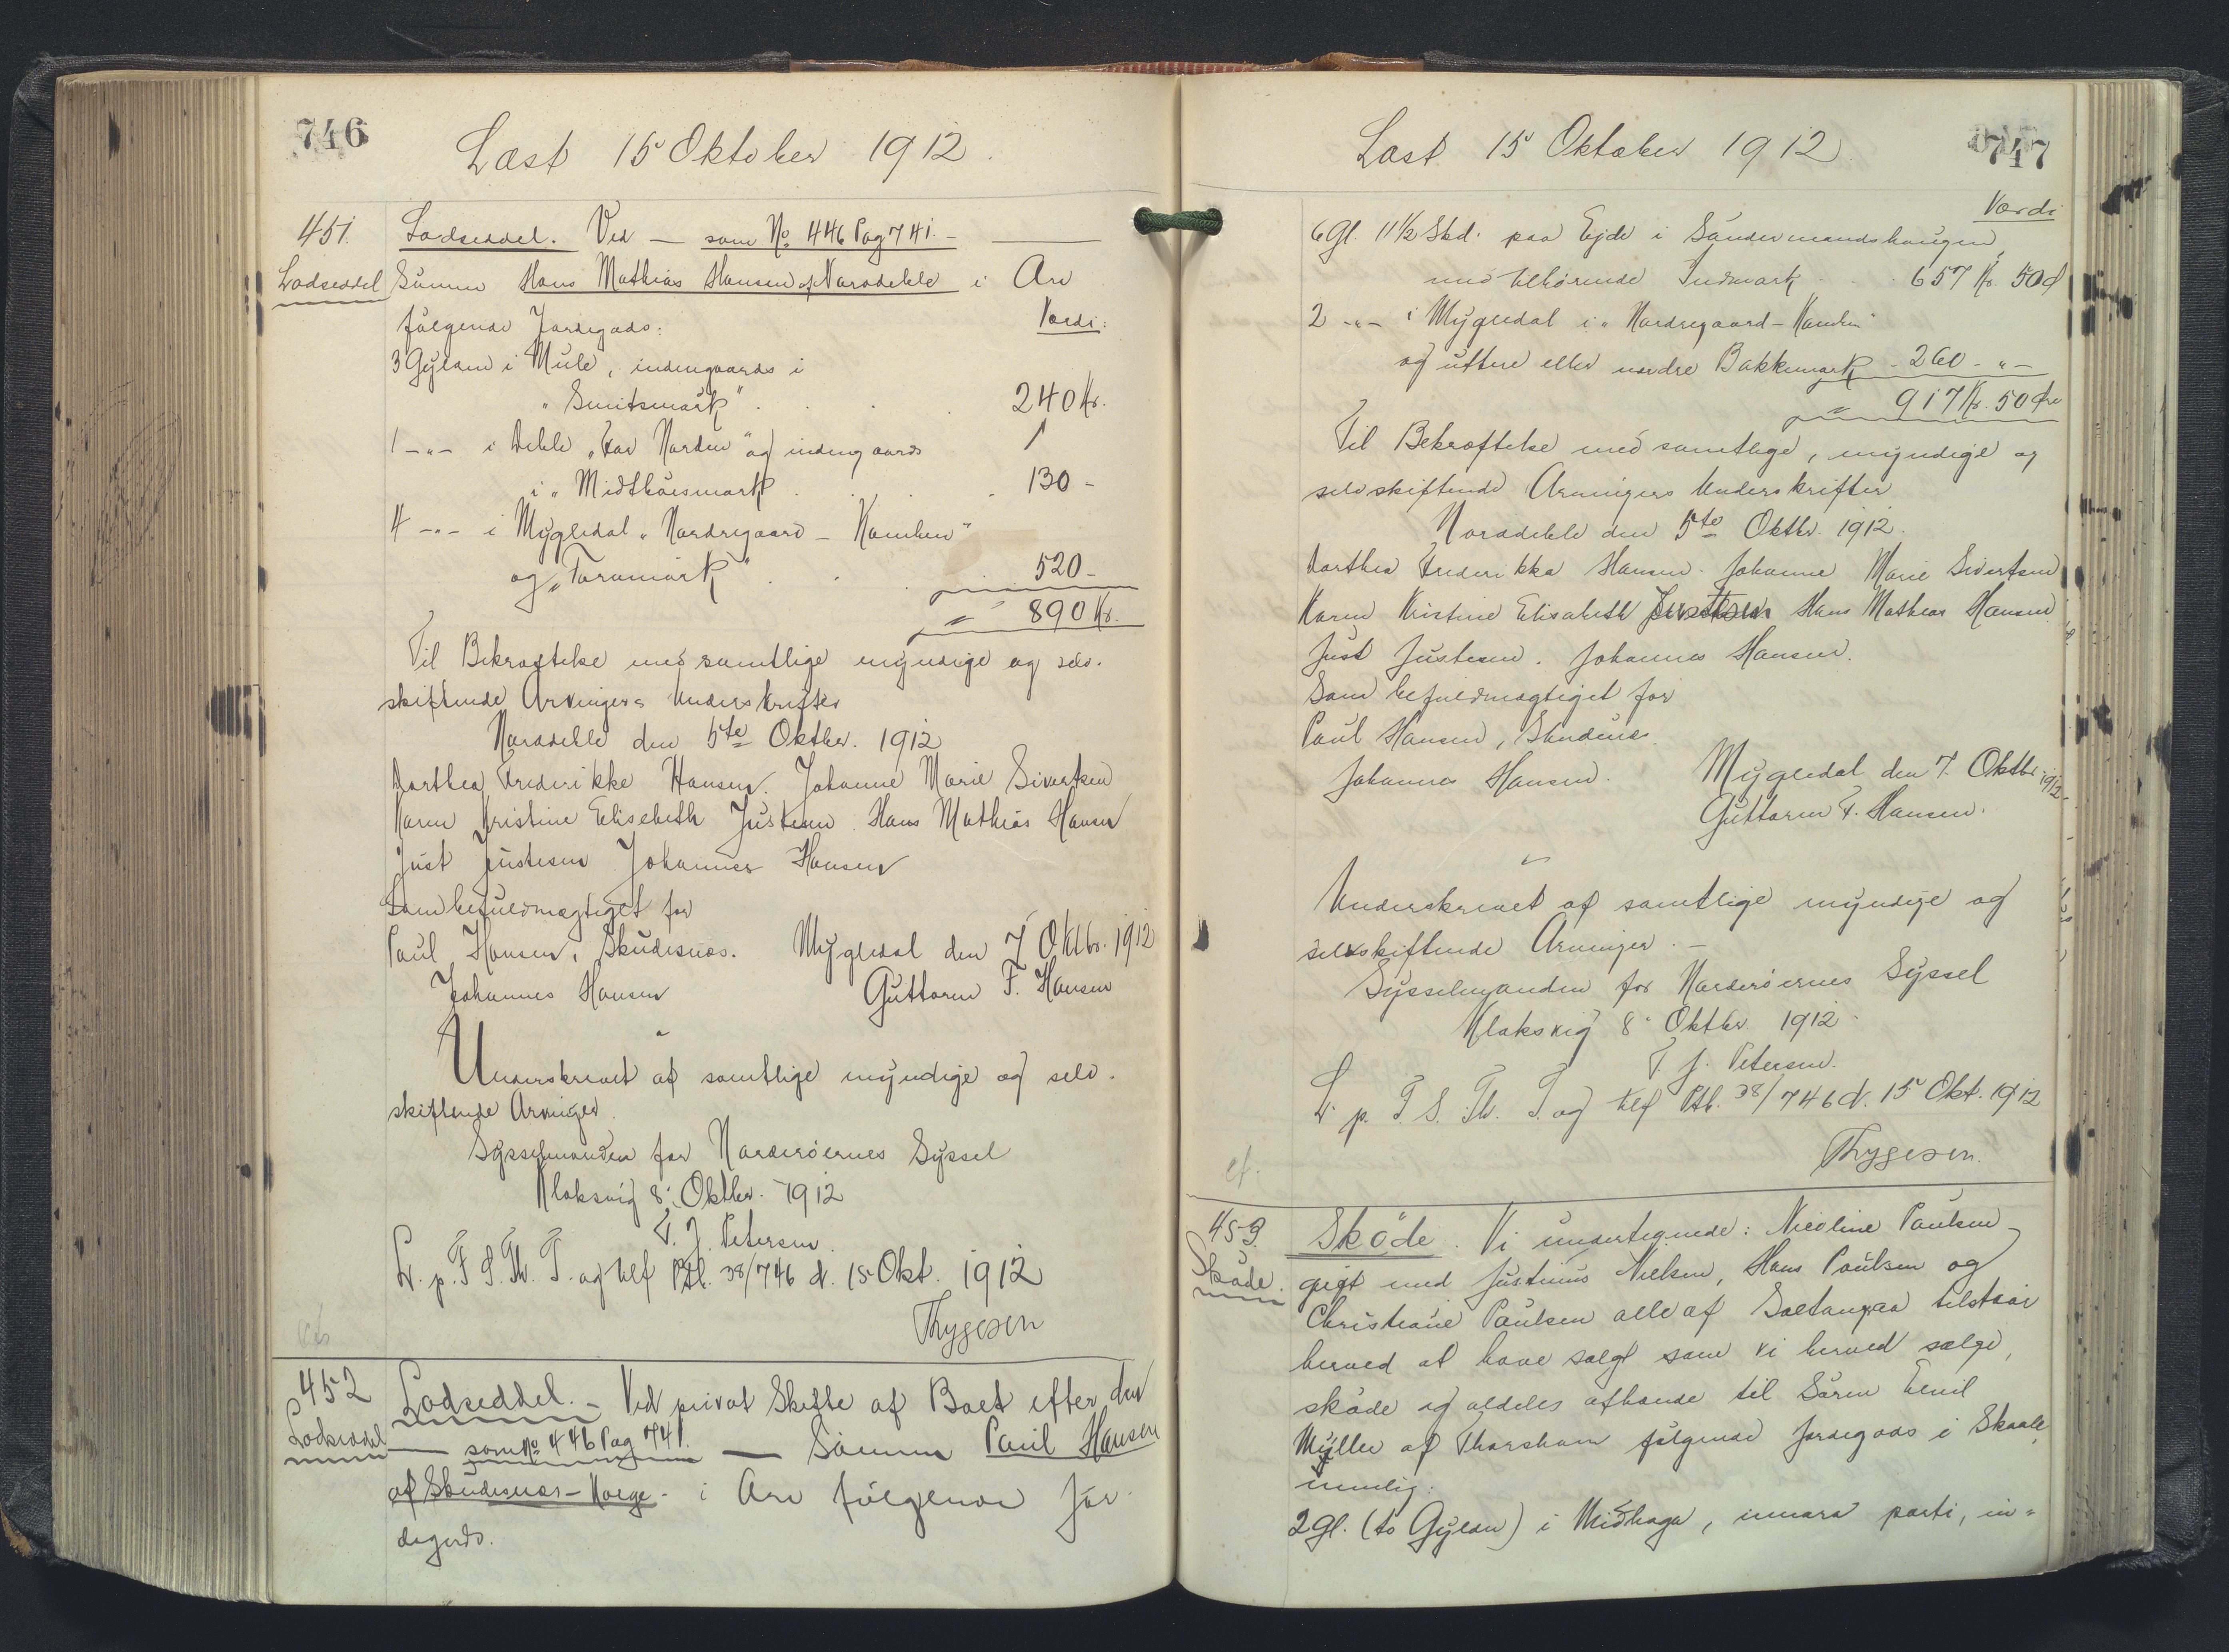 746
Læst 15 Oktober 1912.
451.
Lodseddel
Lodseddel. Ved — som No 446 Pag 741. —
Sønnen Hans Mathias Hansen af Norddeble i Arv
følgende Jordegods: Værdi:
3 Gylden i Mule, indengaards i
"Smitsmørk" . . . 240 Kr.
1 -"- i Deble "Far Norden" og indengaards
i "Midthúsmørk" . . . 130 -
4 -"- i Mygledal "Nordregaard - Kamben"
og "Toramørk" . . . 520 -
= 890 Kr.
Til Bekræftelse med samtlige myndige og selv-
skiftende Arvingers Underskrifter
Norddeble den 5te Oktbr. 1912
Dorthea Frederikke Hansen. Johanne Marie Sivertsen
Karen Kristine Elisebeth Justesen. Hans Mathias Hansen
Just Justesen Johannes Hansen
Som befuldmægtiget for
Paul Hansen, Skudesnæs. Mygledal den 7 Oktbr. 1912
Johannes Hansen Guttorm F. Hansen
Underskrevet af samtlige myndige og selv-
skiftende Arvinger.
Sysselmanden for Norderøernes Syssel
Klaksvig 8' Oktbr. 1912
T. J. Petersen.
L. p. F. S. Th. T. og tilf Ptb. 38/746 d. 15 Okt. 1912
Thygesen
452
Lodseddel
Lodseddel. - Ved privat Skifte af Boet efter den
— som No 446 Pag 741. — Sønnen Paul Hansen
af Skudesnæs - Norge - i Arv følgende Jor-
degods.
747
Læst 15 Oktober 1912.
Værdi
6 Gl. 11½ Skd. paa Ejde i Sundermandshaugen,
med tilhørende Indmark . . 657 Kr. 50 Ø
2 -"- i Mygledal i "Nordregaard - Kamben"
og uttere eller nordre Bakkemørk - 260 - " -
= 917 Kr. 50 Øre
Til Bekræftelse med samtlige, myndige og
selvskiftende Arvingers Underskrifter
Norddeble den 5te Oktbr. 1912.
Dorthea Frederikke Hansen. Johanne Marie Sivertsen
Karen Kristine Elisabeth Justesen Hans Mathias Hansen
Just Justesen. Johannes Hansen.
Som befuldmægtiget for
Paul Hansen, Skudenes.
Johannes Hansen. Mygledal den 7. Oktbr. 1912.
Guttorm F. Hansen.
Underskrevet af samtlige myndige og
selvskiftende Arvinger. -
Sysselmanden for Norderøernes Syssel
Klaksvig 8' Oktbr 1912.
T. J. Petersen.
L. p. F. S. Th. T. og tilf Ptb. 38/746 d. 15 Okt. 1912
Thygesen.
cf.
453.
Skøde.
Skøde. Vi undertegnede: Nicoline Paulsen
gigt med Justinus Nielsen, Hans Paulsen og
Christiane Paulsen alle af Saltangraa tilstaar
herved at have solgt som vi herved sælge,
skøde og aldeles afhænde til Sören Emil
Müller af Thorshavn følgende Jordegods i Skaale
nemlig:
2 Gl. (to Gylden) i Miðhaga, innara parti, in=